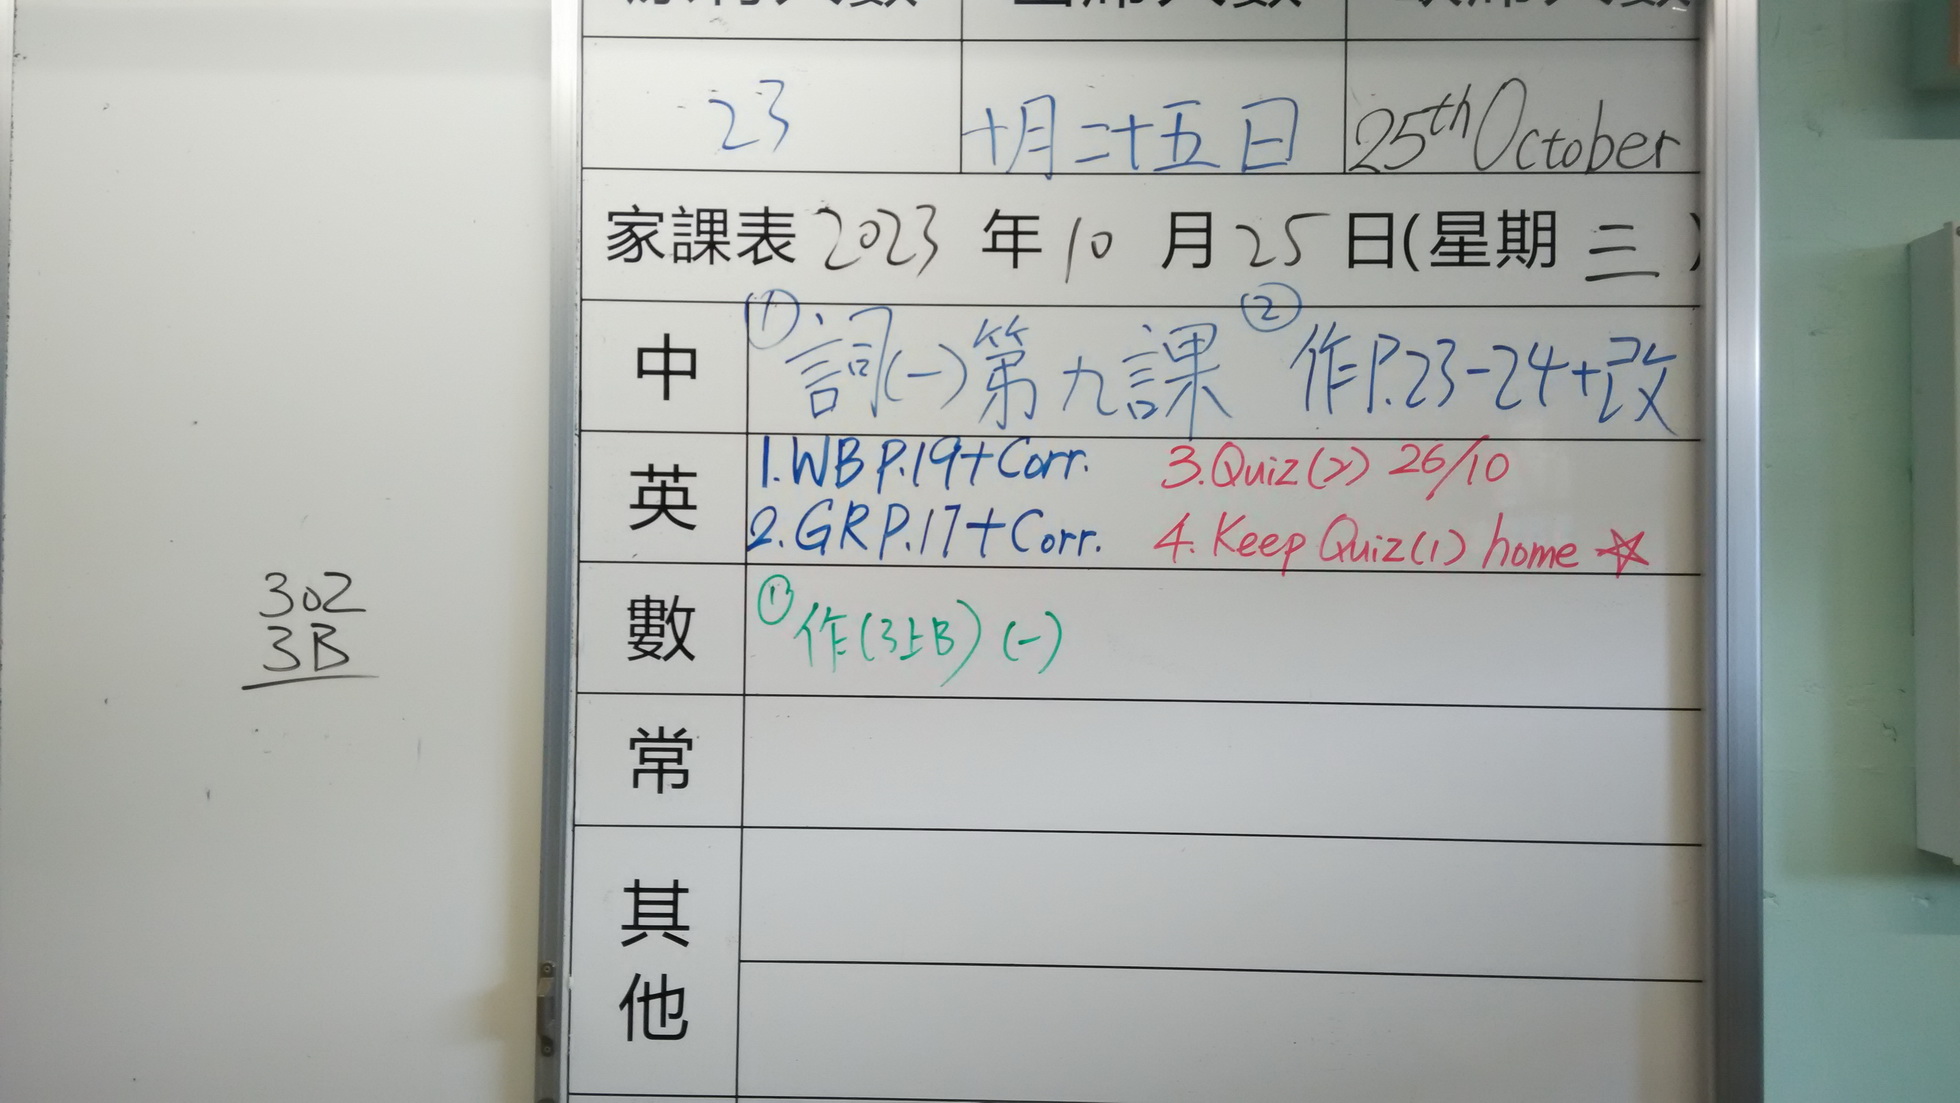 302
3B
原有人數 出席人數 缺席人數
23 十月二十五日 25th October
家課表 2023 年 10 月 25 日(星期 三 )
中 ① 詞(一)第九課 ② 作P.23-24+改
英 1.WB P.19+Corr. 3.Quiz(2) 26/10
2.GR P.17+Corr. 4.Keep Quiz(1) home ☆
數 ① 作(3上B) (一)
常
其他